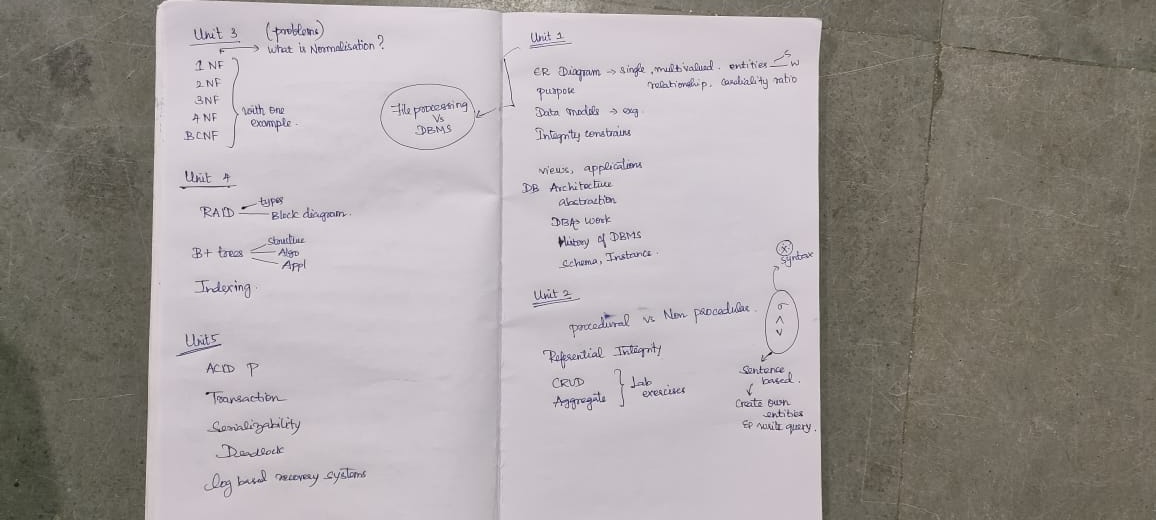 Unit 3 (problems)
What is Normalisation?
1 NF
2 NF
3NF
4 NF
BCNF
with one
example.
Unit 4
RAID
types
Block diagram.
B+ trees
Structure
Algo
Appl
Indexing.
Unit5
ACID P
Transaction
Serializability
Deadlock
log based recovery systems
Unit 1
ER Diagram → single, multivalued. entities S W
relationship, cardiality ratio
purpose
Data models → exg.
Integrity constrains
File processing
Vs
DBMS
views, applications
DB Architecture
abstraction
DBA's work
History of DBMS
Schema, Instance.
Unit 2
procedural vs Non procedular.
Referential Integrity
CRUD
Aggregate
Lab
exercises
syntax
σ
^
v
Sentence
based.
Create own
entities
& write query.